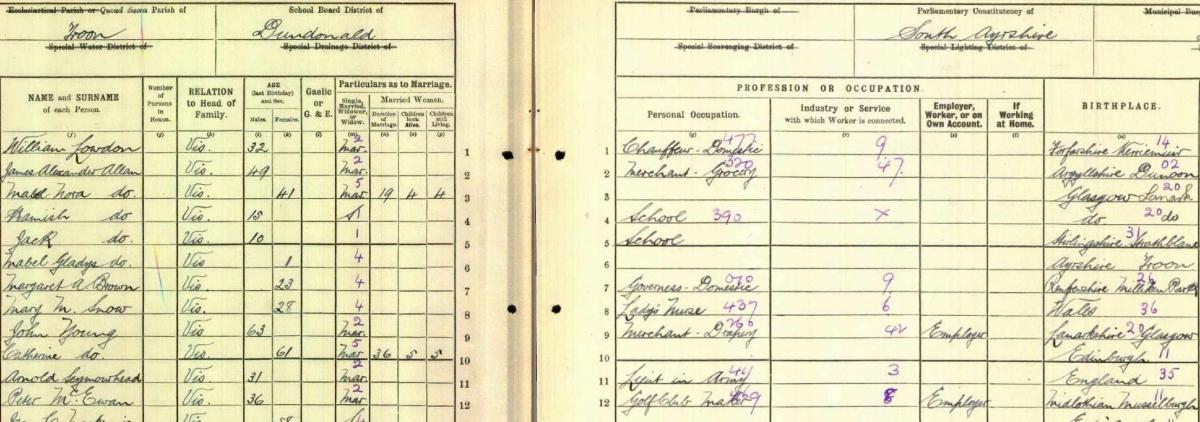 Ecclesiastical Parish or Quoad Sacra Parish of
Troon
Special Water District of
School Board District of
Dundonald
Special Drainage District of
Parliamentary Burgh of
Special Scavenging District of
Parliamentary Constituency of
South Ayrshire
Special Lighting District of
Municipal
NAME and SURNAME of each Person.
Number of Persons in House.
RELATION to Head of Family.
AGE (last Birthday) and Sex.
Males.
Females.
Gaelic or G. & E.
Particulars as to Marriage.
Single, Married, Widower, or Widow.
Married Women.
Duration of Marriage.
Children born Alive.
Children still Living.
PROFESSION OR OCCUPATION.
Personal Occupation.
Industry or Service with which Worker is connected.
Employer, Worker, or on Own Account.
If Working at Home.
BIRTHPLACE.
William Lowdon Vis. 32 2 Mar. 1
James Alexander Allan Vis. 49 2 Mar. 2
Mabel Nora do. Vis. 41 5 Mar 19 4 4 3
Hamish do Vis. 15 1 4
Jack do. Vis. 10 1 5
Mabel Gladys do. Vis 1 4 6
Margaret A Brown Vis 23 4 7
Mary M. Snow Vis. 28 4 8
John Young Vis. 63 2 Mar. 9
Catherine do. Vis. 61 5 Mar 36 5 5 10
Arnold Vis. 31 2 Mar. 11
Peter McEwan Vis. 36 2 Mar 12
1 Chauffeur - Domestic 477 9 Forfarshire Kirriemuir 14
2 Merchant - Grocery 320 47 Argyllshire Dunoon 02
3 Glasgow Lanark 20
4 School 390 x do 20 do
5 School Stirlingshire Strathblane 31
6 Ayrshire Troon
7 Governess - Domestic 9 Renfrewshire Milliken Park 26
8 Lady's Nurse 437 6 Wales 36
9 Merchant - Drapery 42 Employer Lanarkshire 20 Glasgow
10 Edinburgh 11
11 Lieut in Army 3 England 35
12 Golf Club Maker 8 Employer Midlothian Musselburgh 11